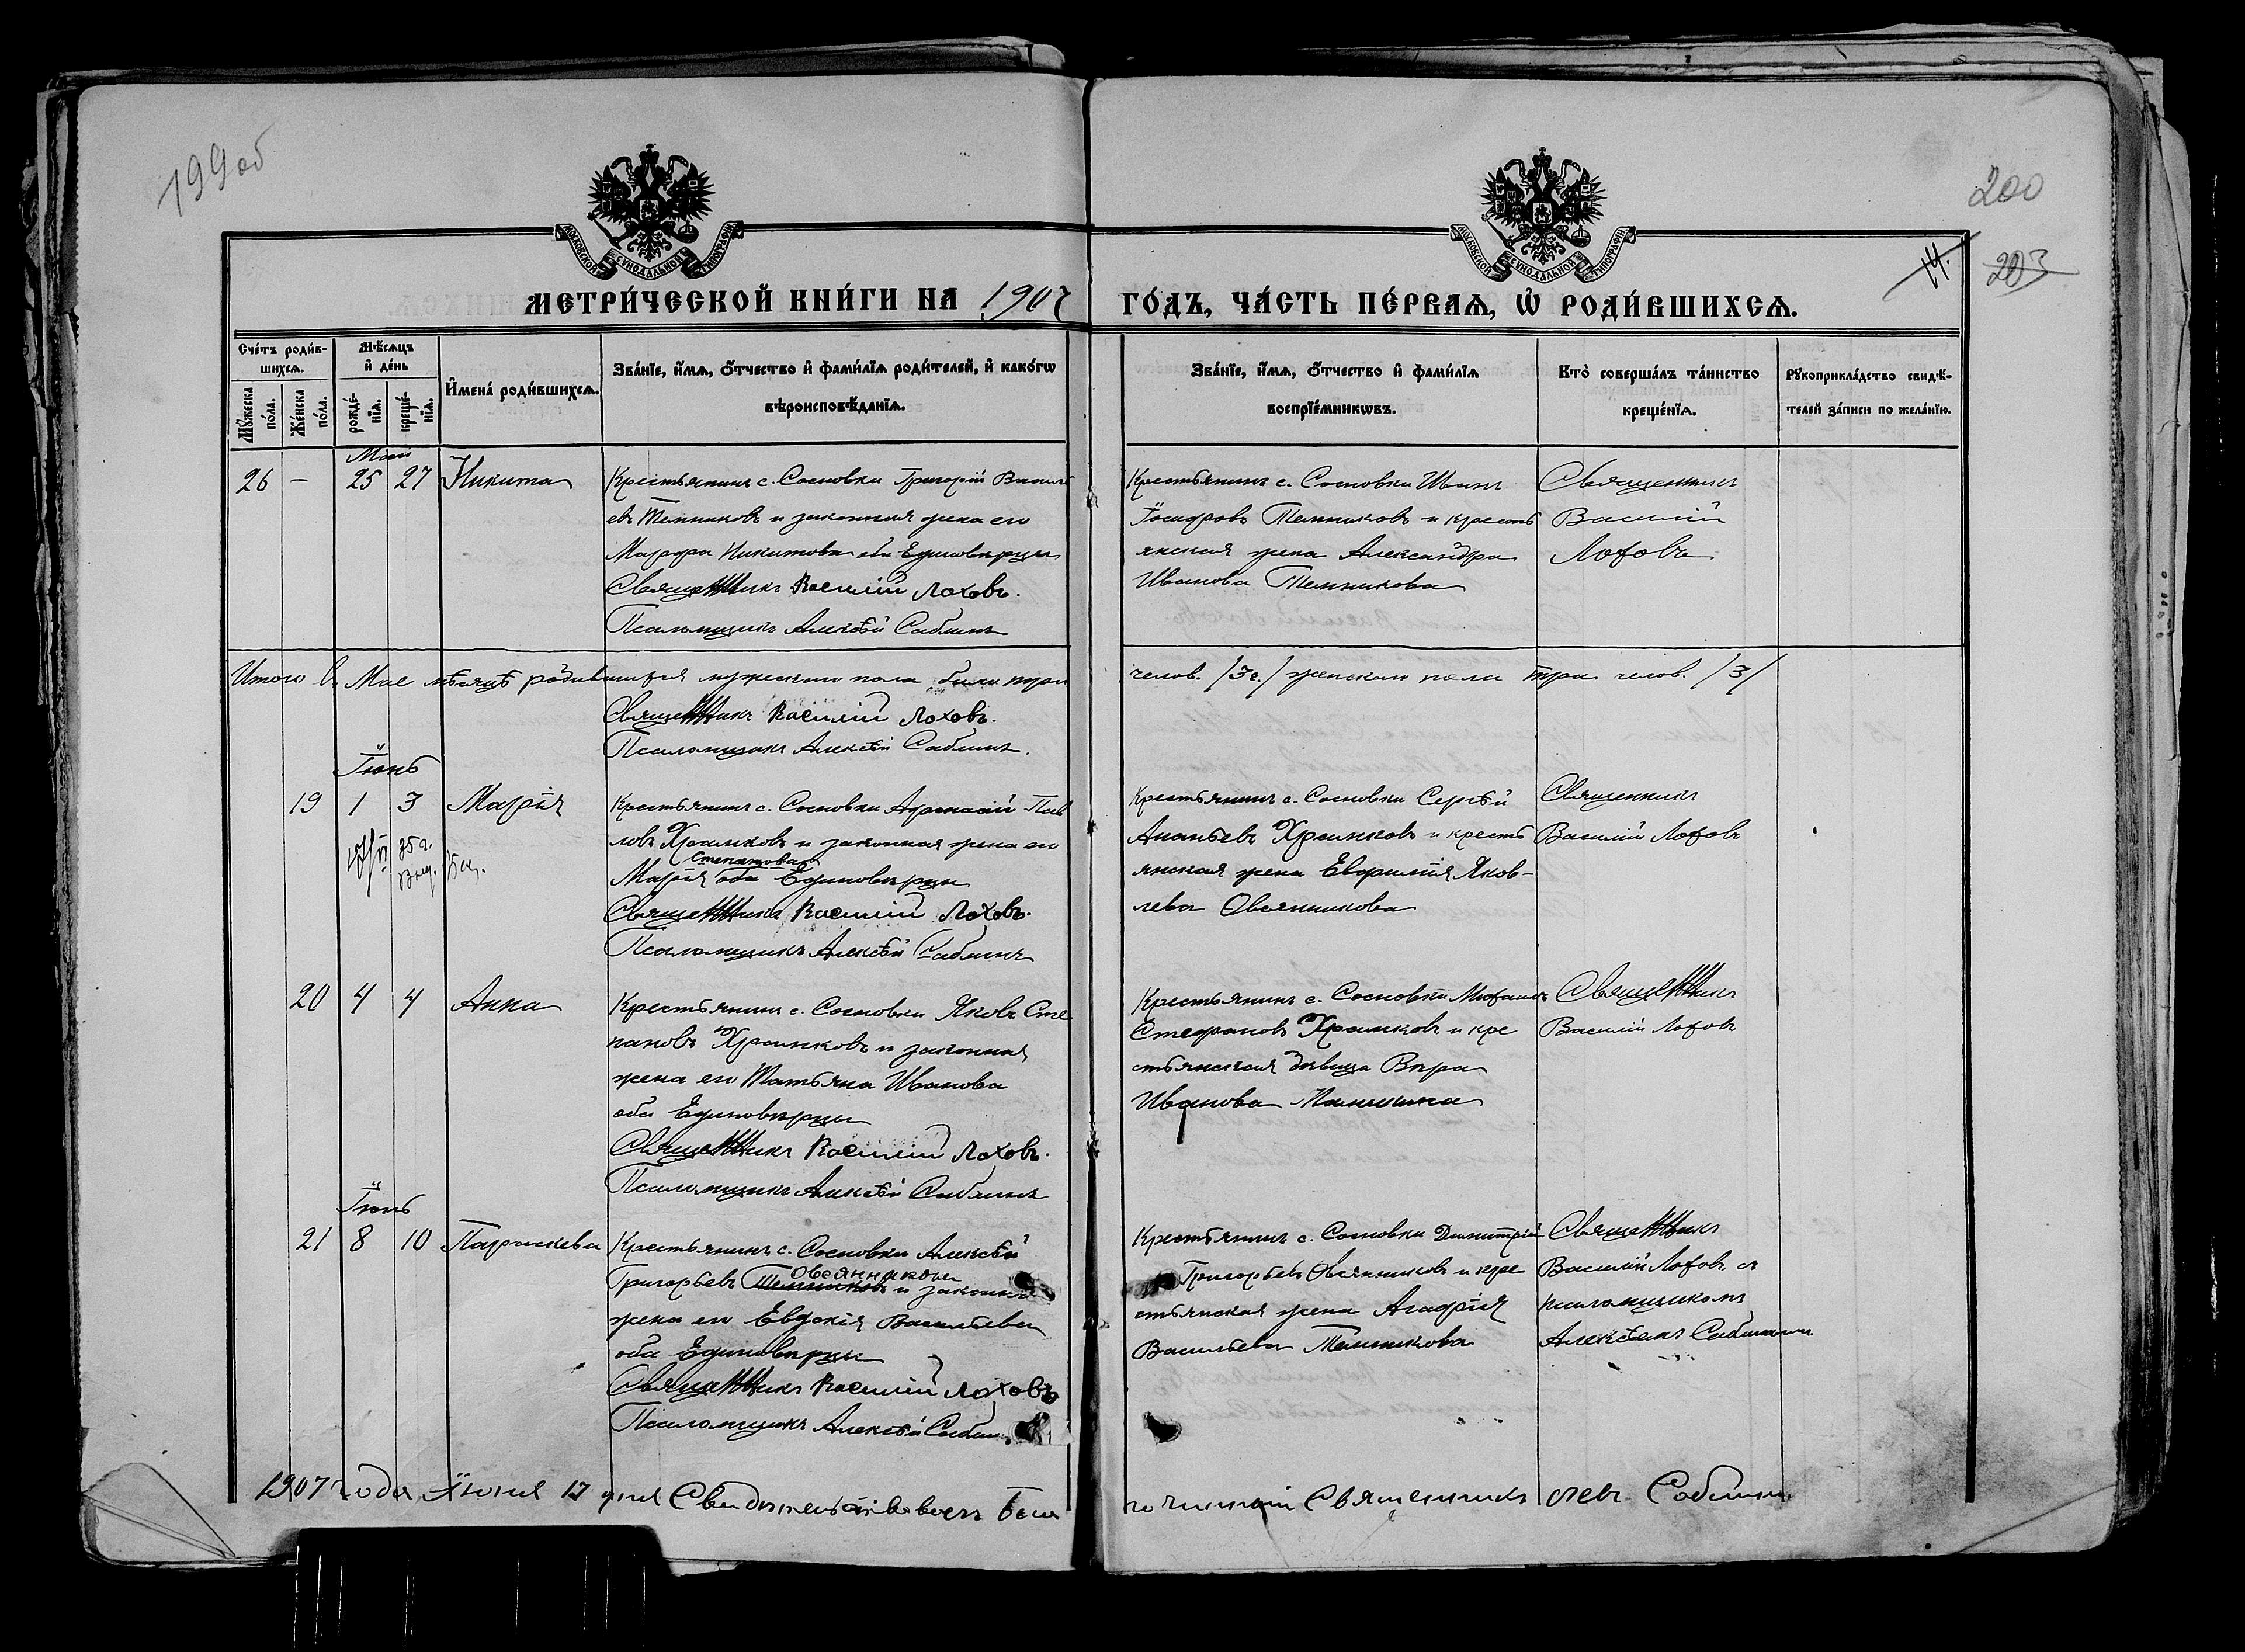 199об
200
203
14.
МОСКОВСКОЙ СѴНОДАЛЬНОЙ ТИПОГРАФІИ
МОСКОВСКОЙ СѴНОДАЛЬНОЙ ТИПОГРАФІИ
МЕТРИ́ЧЕСКОЙ КНИ́ГИ НА 1907 ГО́ДЪ, ЧА́СТЬ ПЕ́РВАѦ, Ѡ҆ РОДИ́ВШИХСѦ.
Сче́тъ роди́в-
шихсѧ.
Мꙋ́жеска по́ла.
Же́нска по́ла.
Мѣ́сѧцъ
и҆ де́нь
рожде́-
нїѧ.
креще́-
нїѧ.
И҆мена̀ роди́вшихсѧ.
Зва́нїе, и҆́мѧ, о҆́тчество и҆ фами́лїѧ роди́телей, и҆ како́гѡ
вѣроисповѣ́данїѧ.
Зва́нїе, и҆́мѧ, о҆́тчество и҆ фами́лїѧ
воспрїе́мникѡвъ.
Кто̀ соверша́лъ та́инство
креще́нїѧ.
Рꙋкоприкла́дство свидѣ́-
телей за́писи по жела́нїю.
Май
26 – 25 27 Никита
Крестьянинъ с. Сосновки Григорій Василь
евъ Темниковъ и законная жена его
Марфа Никитова оба Единовѣрцы
Священникъ Василій Лоховъ.
Псаломщикъ Алексѣй Саблинъ
Крестьянинъ с. Сосновки Иванъ
Ѳедоровъ Темниковъ и кресть
янская жена Александра
Иванова Темникова
Священникъ
Василій
Лоховъ
Итого въ Мае мѣсяцѣ родившихся мужескаго пола было три челов. /3ч./ женскаго пола три челов. /3/
Священникъ Василій Лоховъ.
Псаломщикъ Алексѣй Саблинъ.
Іюнь
19 1 3 Марія
Крестьянинъ с. Сосновки Афанасій Пав
ловъ Храмковъ и законная жена его
Степанова
Марія оба Единовѣрцы
Священникъ Василій Лоховъ.
Псаломщикъ Алексѣй Саблинъ
Крестьянинъ с. Сосновки Сергѣй
Ананьевъ Храмковъ и кресть
янская жена Евфимія Яков-
лева Овсянникова
Священникъ
Василій Лоховъ
20 4 4 Анна
Крестьянинъ с. Сосновки Яковъ Сте
пановъ Храмковъ и законная
жена его Татьяна Иванова
оба Единовѣрцы
Священникъ Василій Лоховъ.
Псаломщикъ Алексѣй Саблинъ
Крестьянинъ с. Сосновки Михаилъ
Стефановъ Храмковъ и кре
стьянская дѣвица Вѣра
Иванова
Священникъ
Василій Лоховъ
Іюнь
21 8 10 Параскева
Крестьянинъ с. Сосновки Алексѣй
Овсянниковъ
Григорьевъ Темниковъ и законная
жена его Евдокія Васильева
оба Единовѣрцы
Священникъ Василій Лоховъ
Псаломщикъ Алексѣй Саблин
Крестьянинъ с. Сосновки Димитрій
Григорьевъ Овсянниковъ и кре
стьянская жена Агафія
Васильева Темникова
Священникъ
Василій Лоховъ съ
псаломщикомъ
Алексѣемъ Саблинымъ
1907 года Іюня 17 дня Свидѣтельствовалъ Благочинный Священникъ